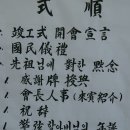 式順
竣工式 開會 宣言
國民儀禮
先祖님에 對한 黙念
感謝牌 授與
會長人事(來賓紹介)
祝辞